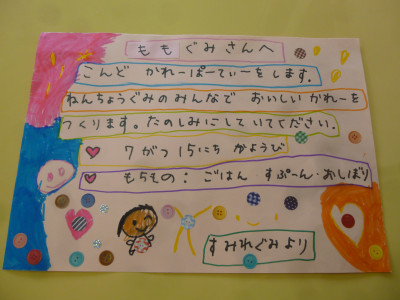 ももぐみさんへ
こんど かれーぱーてぃーをします。
ねんちょうぐみのみんなで おいしい かれーを
つくります。たのしみにしていてください。
7がつ 15にち かようび
もちもの：ごはん・すぷーん・おしぼり
すみれぐみより